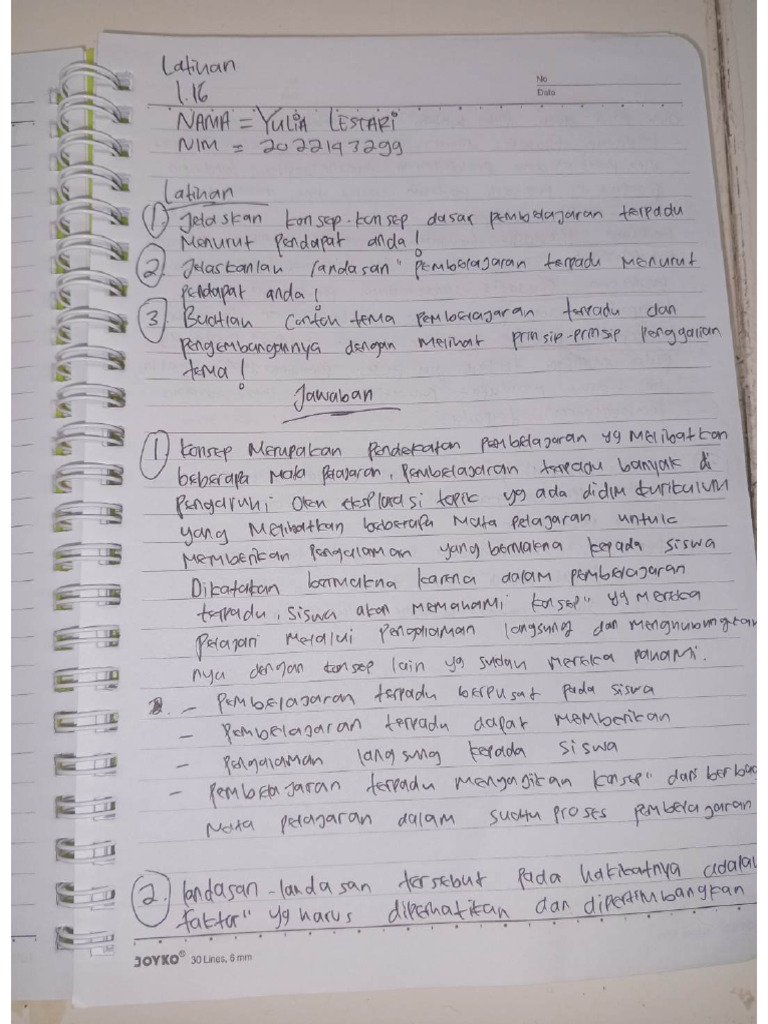 Latihan
1.16
No
Date
NAMA = YULIA LESTARI
NIM = 2022143299
Latihan
1. Jelaskan konsep-konsep dasar pembelajaran terpadu
Menurut pendapat anda!
2. Jelaskanlah landasan" pembelajaran terpadu menurut
pendapat anda!
3. Buatlah contoh tema pembelajaran terpadu dan
pengembangannya dengan melihat prinsip-prinsip penggalian
tema!
Jawaban
1. Konsep Merupakan pendekatan pembelajaran yg melibatkan
beberapa mata pelajaran, pembelajaran terpadu banyak di
pengaruhi oleh eksplorasi topik yg ada didlm kurikulum
yang melibatkan beberapa mata pelajaran untuk
memberikan pengalaman yang bermakna kepada siswa
Dikatakan bermakna karena dalam pembelajaran
terpadu, siswa akan memahami konsep" yg mereka
pelajari melalui pengalaman langsung dan menghubungkan
nya dengan konsep lain yg sudah mereka pahami.
- pembelajaran terpadu berpusat pada siswa
- pembelajaran terpadu dapat memberikan
- pengalaman langsung kepada siswa
- pembelajaran terpadu menyajikan konsep" dari berba
mata pelajaran dalam suatu proses pembelajaran
2. landasan-landasan tersebut pada hakikatnya adala
faktor" yg harus diperhatikan dan dipertimbangkan
JOYKO® 30 Lines, 6 mm